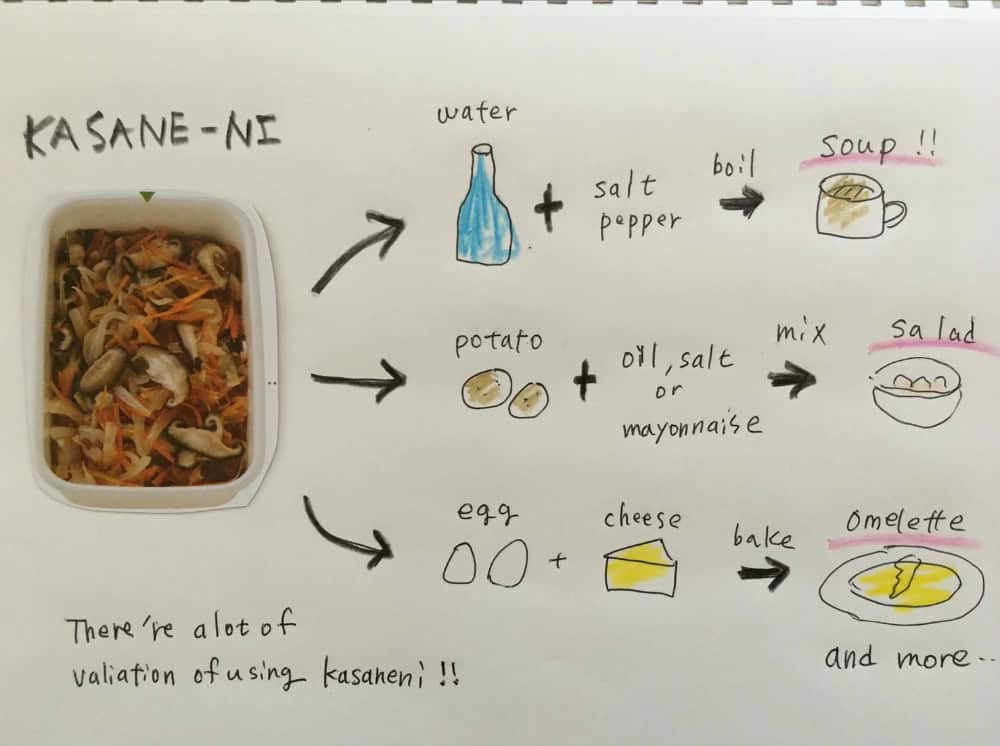 KASANE-NI
water
+
salt
pepper
boil
soup !!
potato
+
oil, salt
or
mayonnaise
mix
salad
egg
+
cheese
bake
omelette
and more..
There're a lot of
valiation of using kasaneni !!